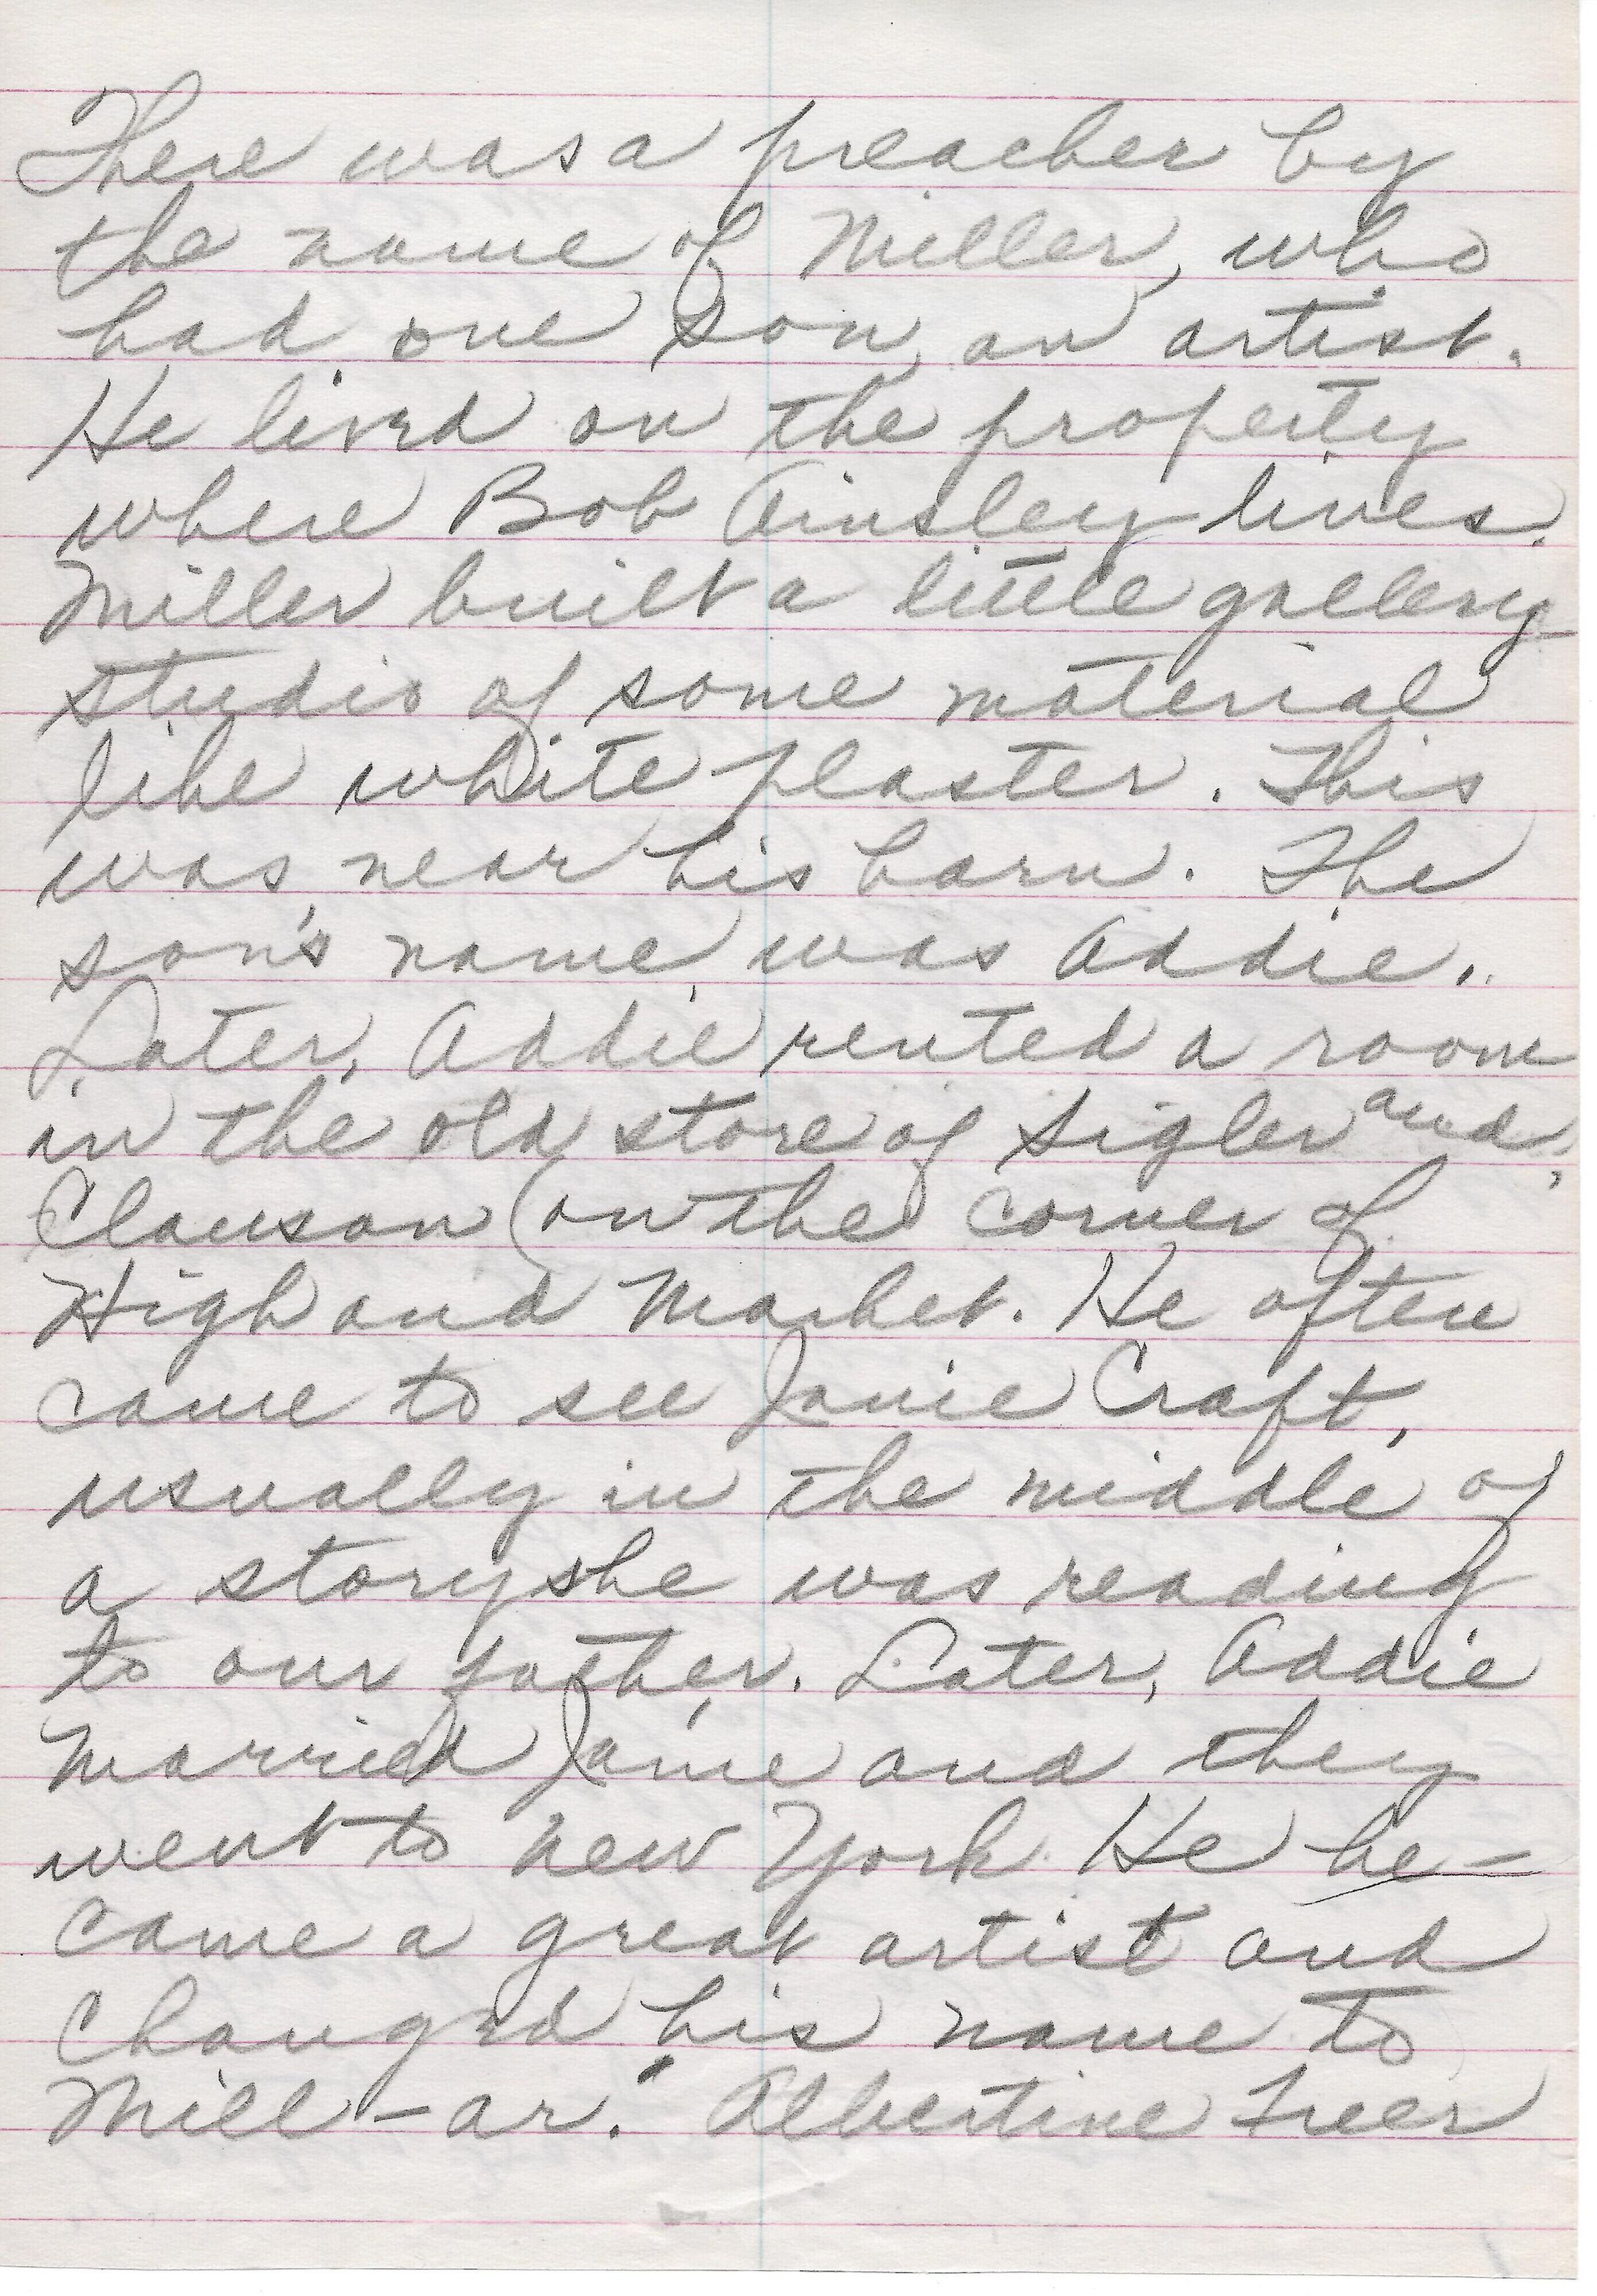 There was a preacher by
the name of Miller, who
had one son, an artist.
He lived on the property
where Bob Ainsley lives.
Miller built a little gallery-
studio of some material
like white plaster. This
was near his barn. The
son's name was Addie.
Later, Addie rented a room
in the old store of Sigler and
Clauson (on the corner of
High and Market. He often
came to see Janie Craft,
usually in the middle of
a story she was reading
to our father. Later, Addie
married Janie and they
went to New York. He be-
came a great artist and
changed his name to
Mill-ar. Albertine Freer